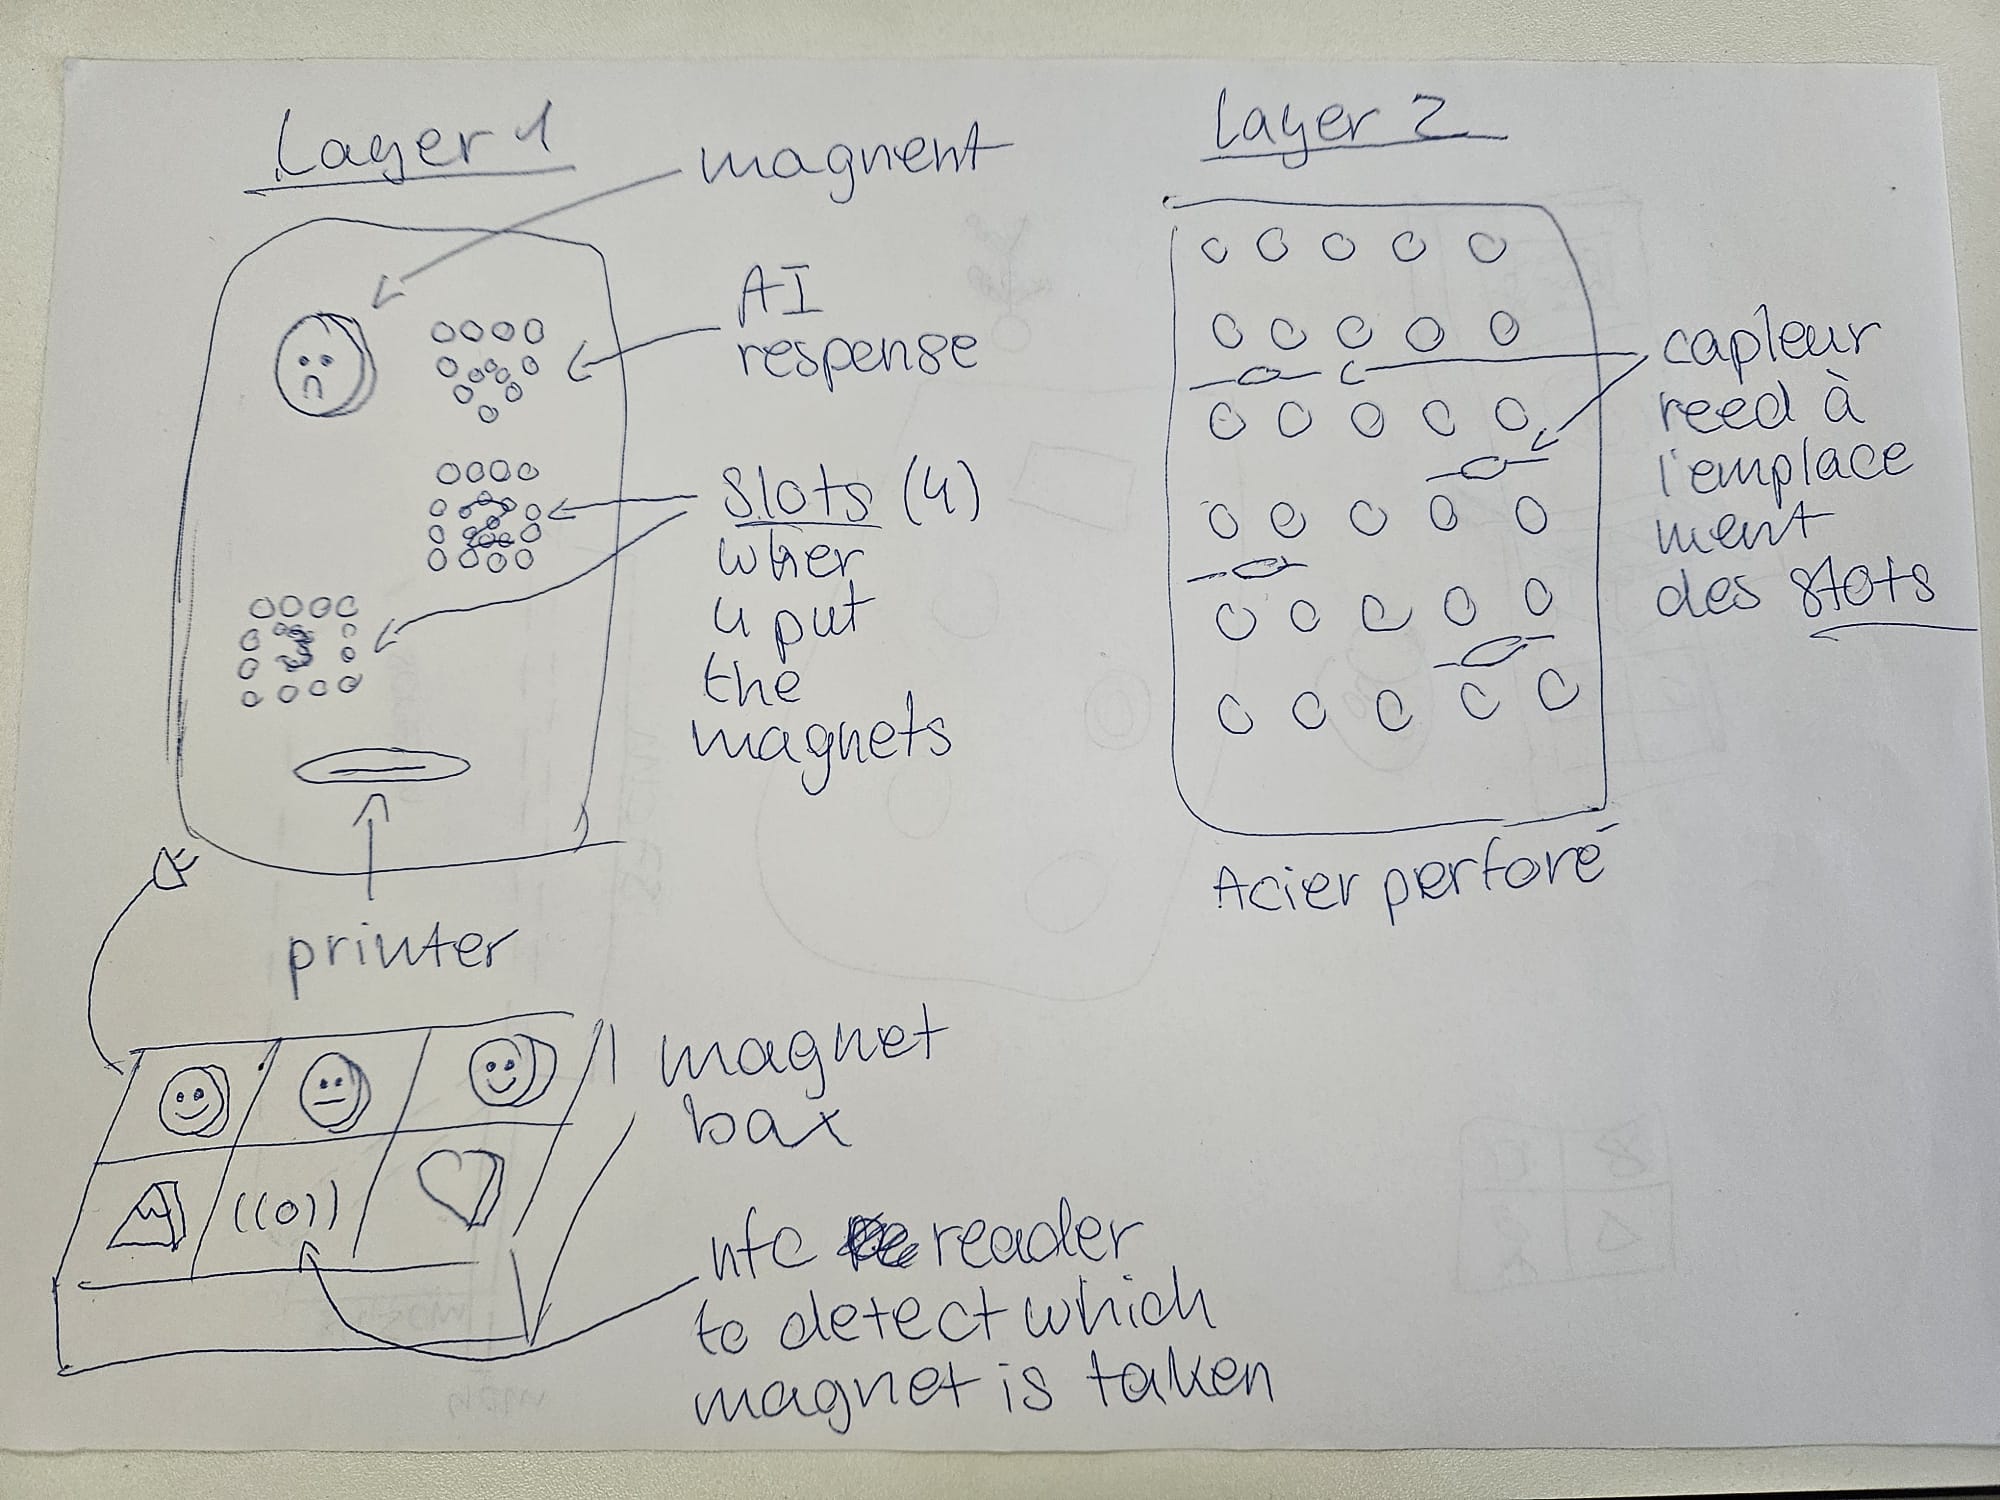 Layer 1
magnent
AI
respense
Slots (4)
wher
u put
the
magnets
printer
magnet
bax
nfc reader
to detect which
magnet is taken
Layer 2
capteur
reed à
l'emplace
ment
des slots
Acier perforé